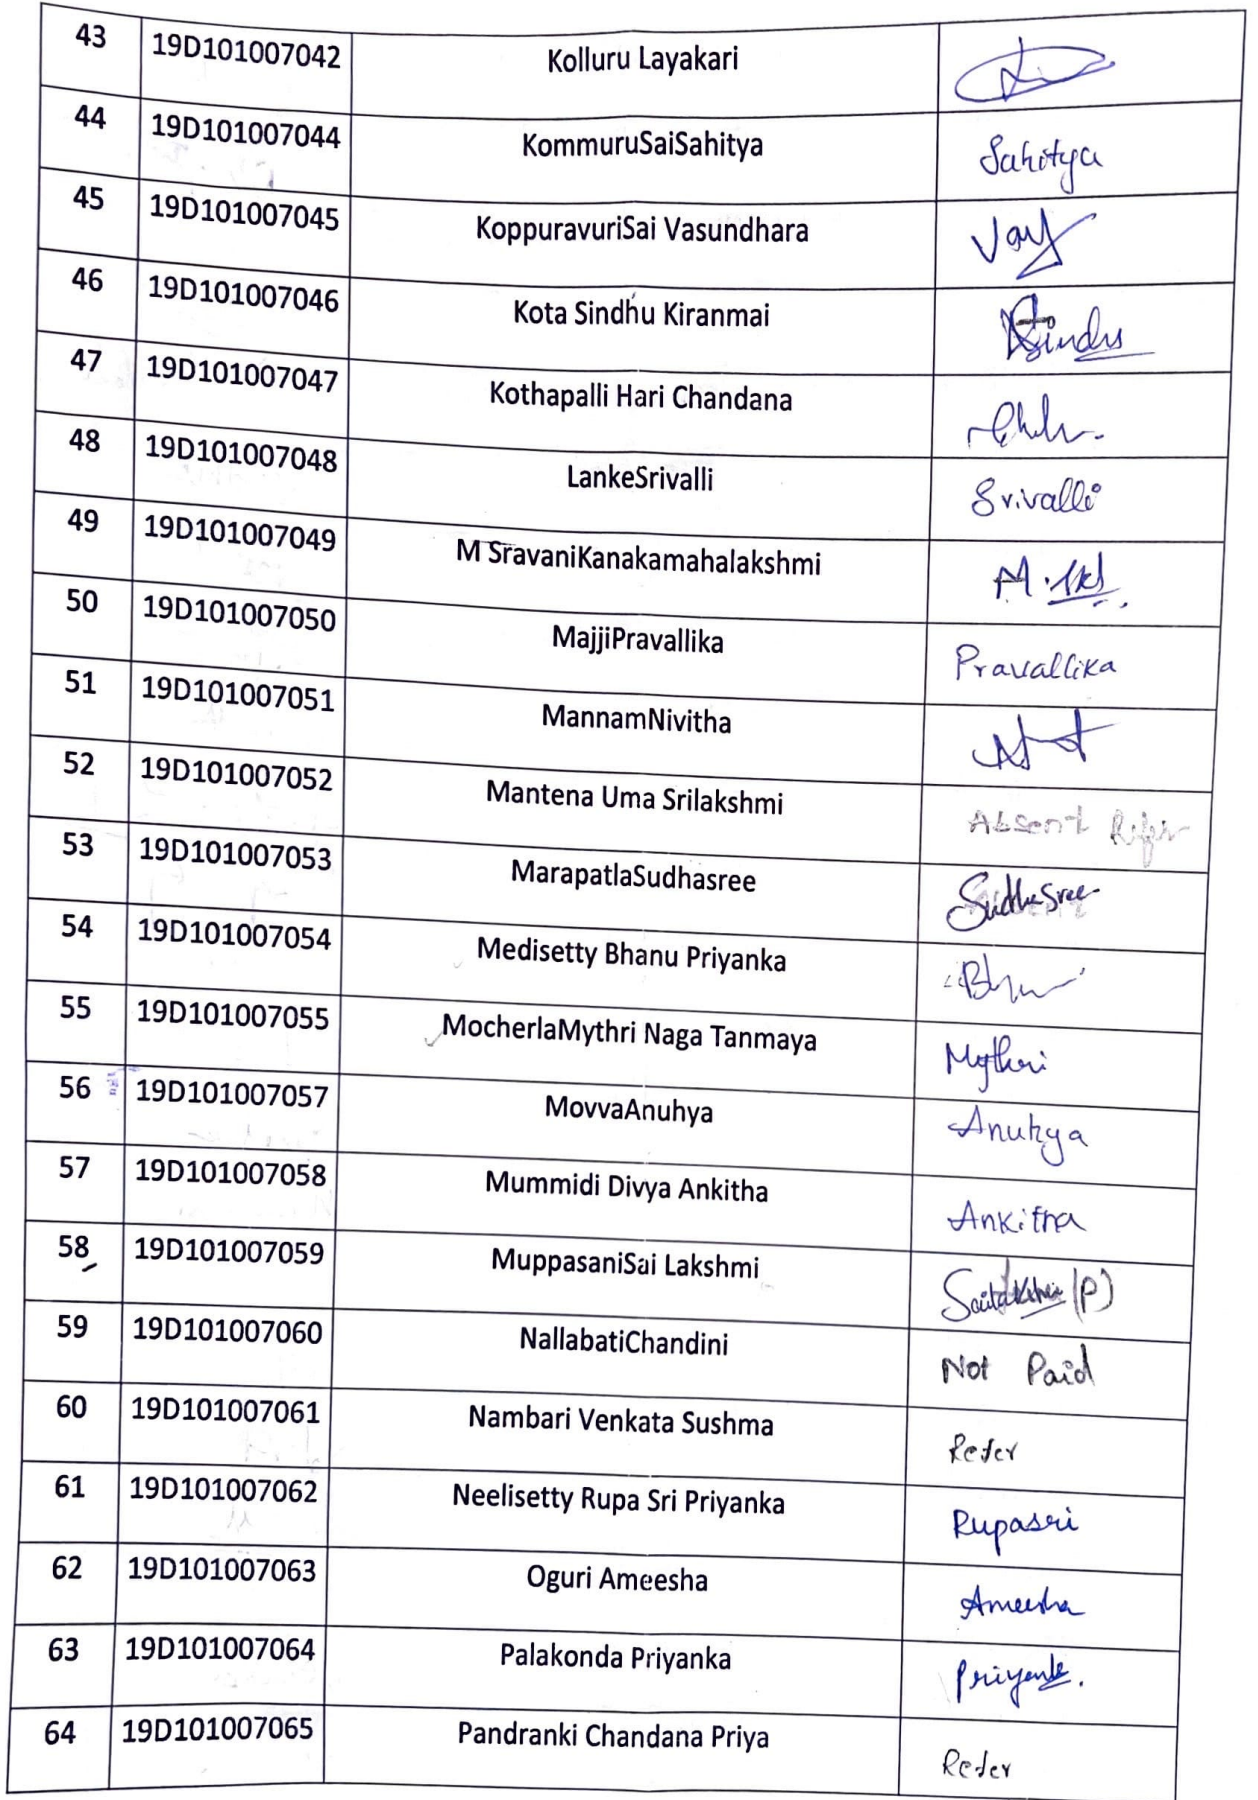 43 19D101007042 Kolluru Layakari
44 19D101007044 KommuruSaiSahitya Sahitya
45 19D101007045 KoppuravuriSai Vasundhara
46 19D101007046 Kota Sindhu Kiranmai
47 19D101007047 Kothapalli Hari Chandana
48 19D101007048 LankeSrivalli Srivalli
49 19D101007049 M SravaniKanakamahalakshmi
50 19D101007050 MajjiPravallika Pravallika
51 19D101007051 MannamNivitha
52 19D101007052 Mantena Uma Srilakshmi Absent
53 19D101007053 MarapatlaSudhasree Sudhasree
54 19D101007054 Medisetty Bhanu Priyanka
55 19D101007055 MocherlaMythri Naga Tanmaya Mythri
56 19D101007057 MovvaAnuhya Anuhya
57 19D101007058 Mummidi Divya Ankitha Ankitha
58 19D101007059 MuppasaniSai Lakshmi (P)
59 19D101007060 NallabatiChandini Not Paid
60 19D101007061 Nambari Venkata Sushma Refer
61 19D101007062 Neelisetty Rupa Sri Priyanka Rupasri
62 19D101007063 Oguri Ameesha Ameesha
63 19D101007064 Palakonda Priyanka
64 19D101007065 Pandranki Chandana Priya Refer